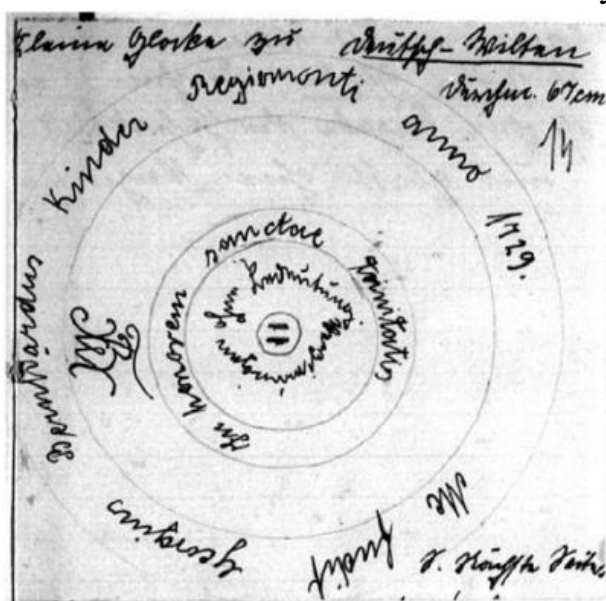 Kleine Glocke zu Deutsch-Wilten
Durchm. 67 cm
14
Me fudit Georgius Bernhardus Kinder Regiomonti anno 1729.
In honorem sanctae trinitatis
Bedeutung
S. Nächste Seite.